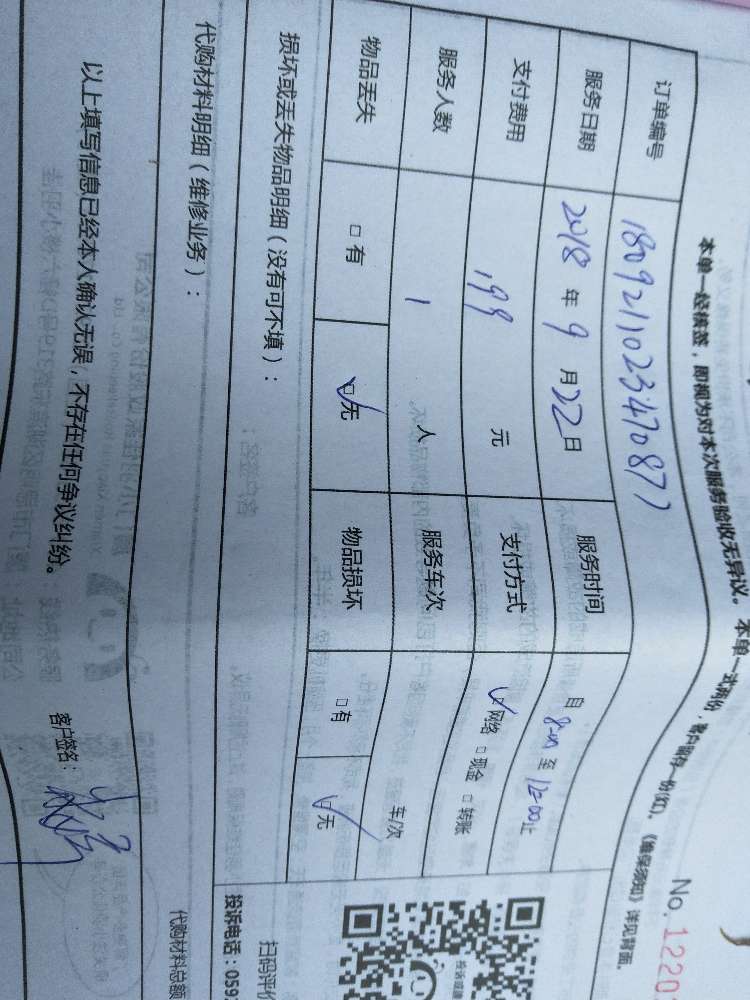 本单一经核签，即视为对本次服务验收无异议。本单一式两份，客户留存一份(红)。《维保须知》详见背面。
No. 1220
订单编号 180921102347087
服务日期 2018 年 9 月 22 日 服务时间 自 8:00 至 12:00 止
支付费用 199 元 支付方式 ☑网络 □现金 □转账
服务人数 1 人 服务车次 车/次
物品丢失 □有 ☑无 物品损坏 □有 ☑无
损坏或丢失物品明细（没有可不填）：
代购材料明细（维修业务）：
扫码评价
投诉电话：059
代购材料总额
以上填写信息已经本人确认无误，不存在任何争议纠纷。
客户签名：